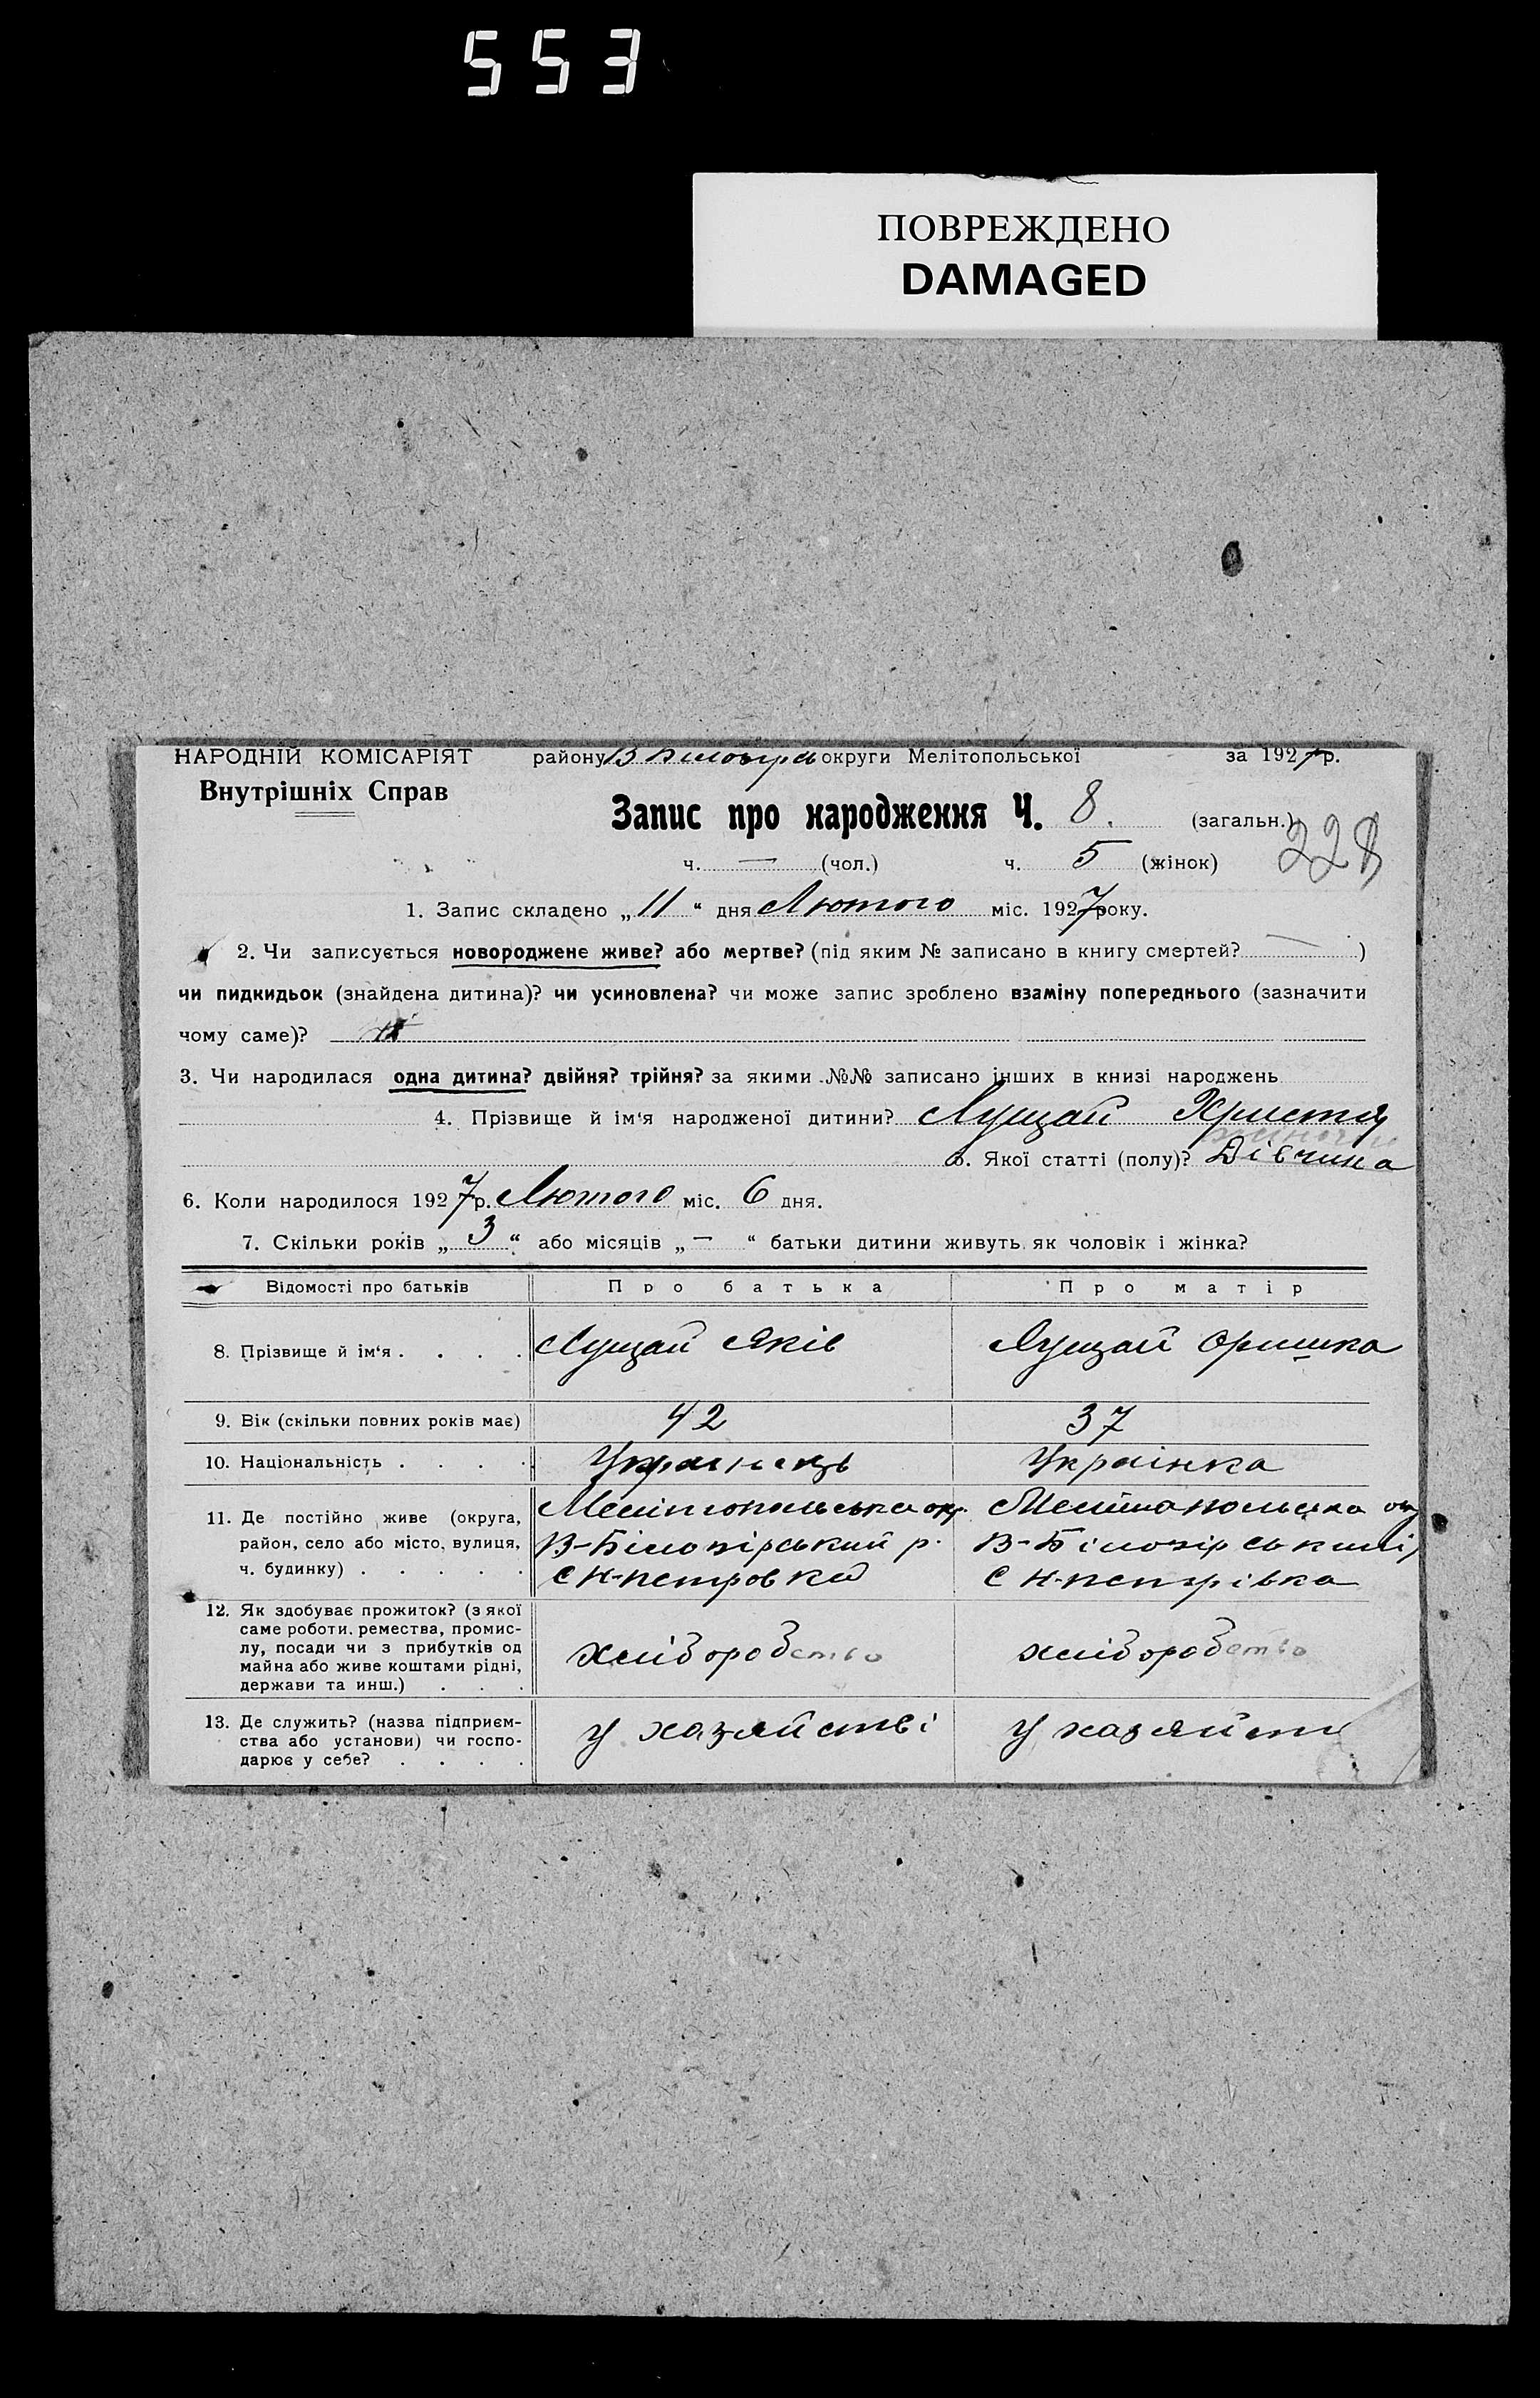 553
ПОВРЕЖДЕНО
DAMAGED
НАРОДНІЙ КОМІСАРІЯТ району В Білозірс округи Мелітопольської за 1927 р.
Внутрішніх Справ
Запис про народження Ч. 8. (загальн.)
228
ч. — (чол.) ч. 5 (жінок)
1. Запис складено „11“ дня Лютого міс. 1927 року.
2. Чи записується новороджене живе? або мертве? (під яким № записано в книгу смертей? — )
чи пидкидьок (знайдена дитина)? чи усиновлена? чи може запис зроблено взаміну попереднього (зазначити
чому саме)?
3. Чи народилася одна дитина? двійня? трійня? за якими №№ записано інших в книзі народжень
4. Прізвище й ім‘я народженої дитини? Лущай Христя
5. Якої статті (полу)? Дівчина
6. Коли народилося 1927 р. Лютого міс. 6 дня.
7. Скільки років „ 3 “ або місяців „ — “ батьки дитини живуть як чоловік і жінка?
Відомості про батьків Про батька Про матір
8. Прізвище й ім‘я . . . . Лущай Яків Лущай Оришка
9. Вік (скільки повних років має) 42 37
10. Національність . . . . Українець Українка
11. Де постійно живе (округа, Мелітопольська окр. Мелітопольська окр
район, село або місто, вулиця, В-Білозірський р. В-Білозірський
ч. будинку) . . . . . с Н-петровка с Н-петрівка
12. Як здобуває прожиток? (з якої
саме роботи, ремества, промис-
лу, посади чи з прибутків од хліборобство хліборобство
майна або живе коштами рідні,
держави та инш.) . . .
13. Де служить? (назва підприєм- у хазяйстві у хазяйст
ства або установи) чи госпо-
дарює у себе? . . . .